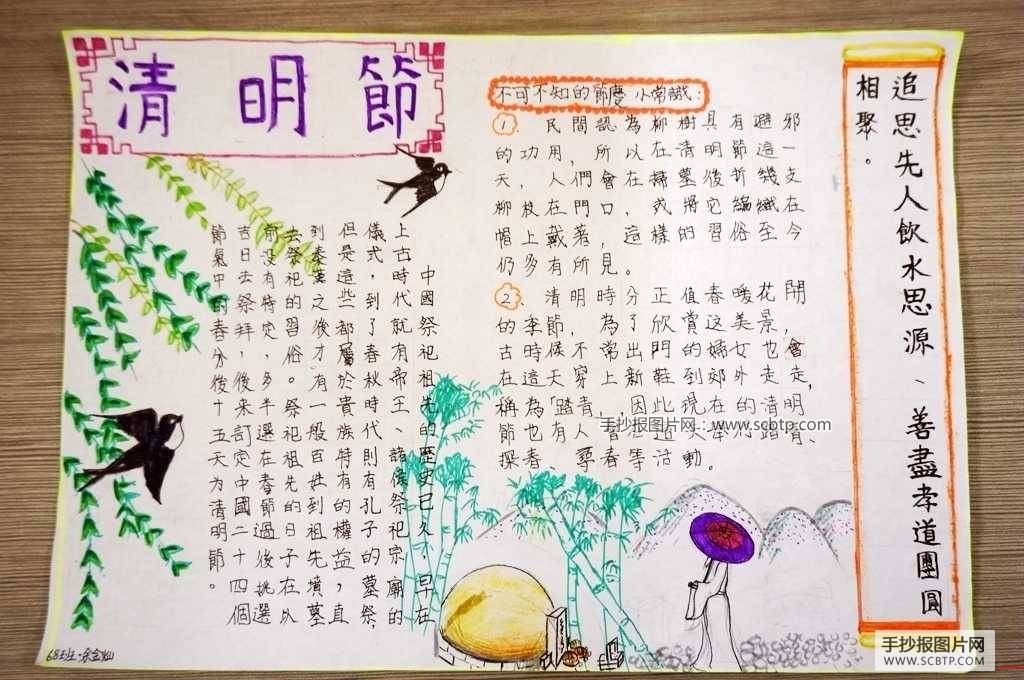 清明節
中國祭祀祖先的歷史已久，早在
上古時代就有帝王、諸侯祭祀宗廟的
儀式，到了春秋時代則有孔子的墓祭，
但是這些都屬於貴族特有的權益，直
到秦漢之後才有一般百姓到祖先墳墓
去祭祀的習俗。祭祀祖先的日子在以
前没有特定，多半選在春節過後挑選
吉日去祭拜，後來訂定中國二十四個
節氣中的春分後十五天为清明節。
不可不知的節慶小常識：
1. 民間認為柳樹具有避邪
的功用，所以在清明節這一
天，人們會在掃墓後折幾支
柳枝在門口，或將它編織在
帽上戴著，這樣的習俗至今
仍多有所見。
2. 清明時分正值春暖花開
的季節，為了欣賞这美景，
古時候不常出門的婦女也會
在這天穿上新鞋到郊外走走，
稱為「踏青」，因此現在的清明
節也有人會
探春、尋春等活動。
追思先人飲水思源、善盡孝道團圓
相聚。
手抄报图片网：www.scbtp.com
手抄报图片网
WWW.SCBTP.COM